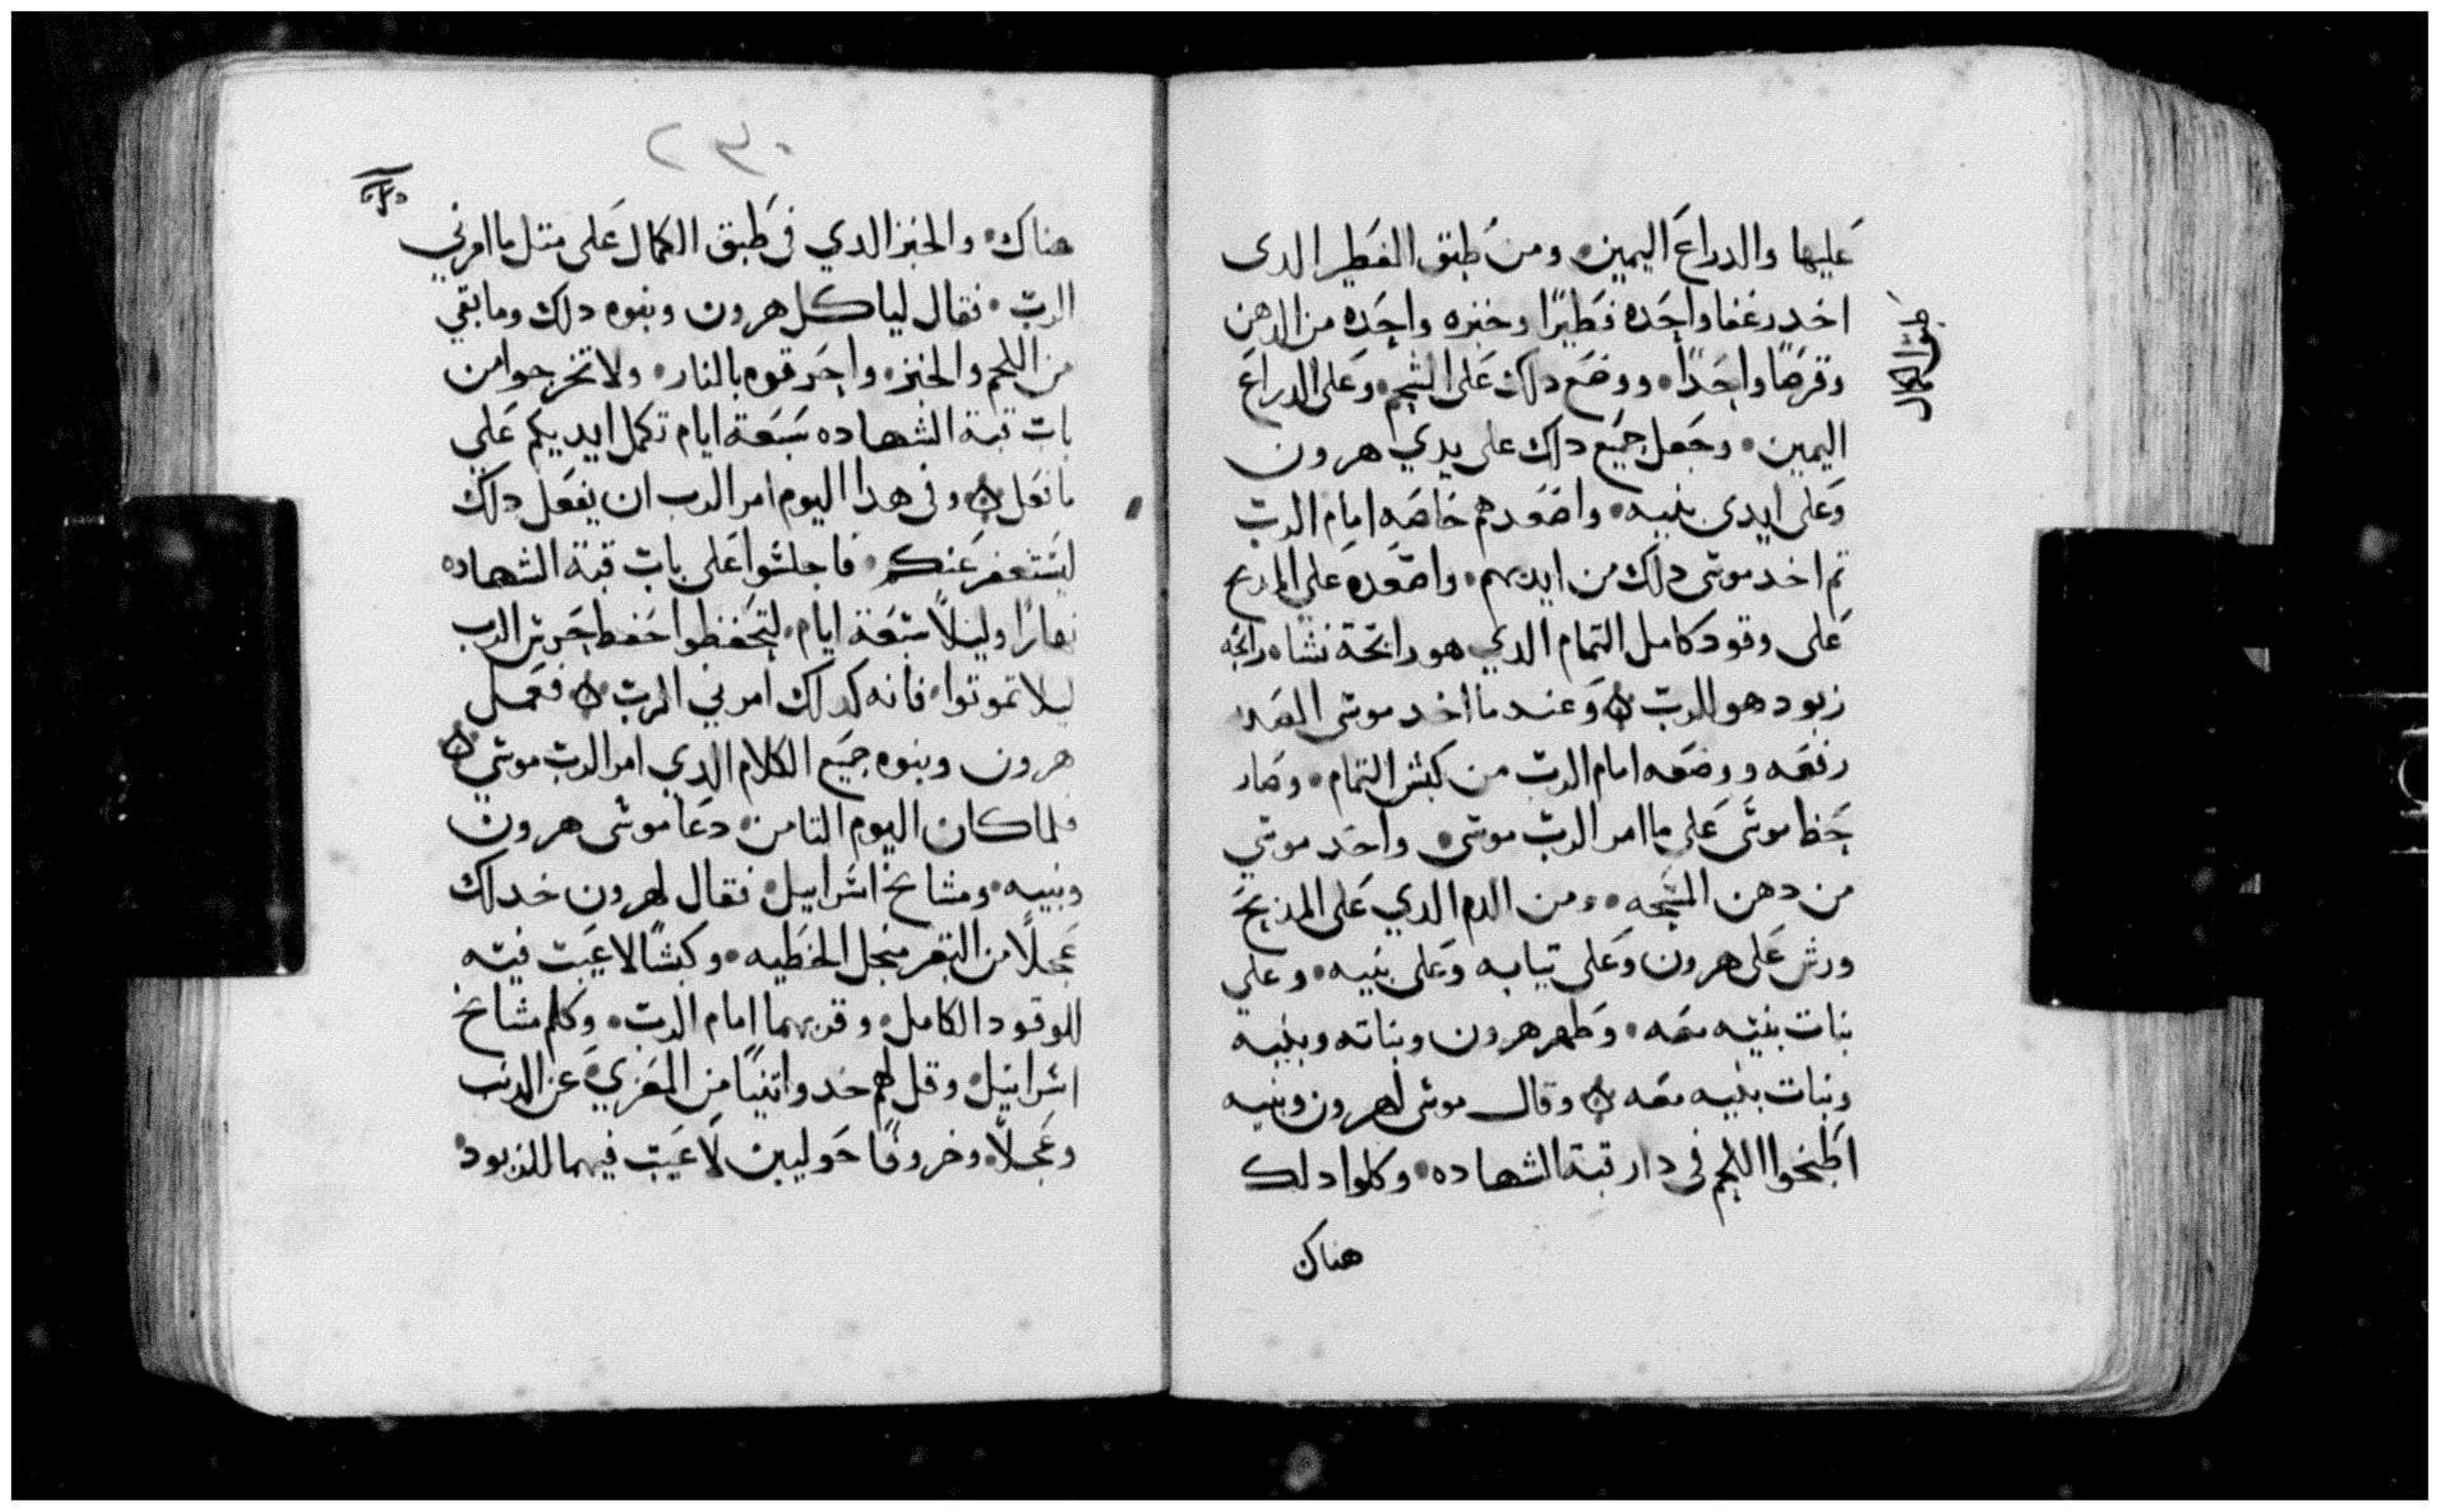 عليها والدراع اليمين ومن طبق الفطير الدى
اخد رغفا واحده فطيرًا وخبزه واحده من الدهن
وقرصًا واحدًا ووضع دلك على الشحم وعلى الدراع
اليمين وجعل جميع دلك على يدي هرون
وعلى ايدى بنيه واصعدهم خاصه امام الرب
تم اخد موسى دلك من ايديهم واصعده على المدبح
على وقود كامل التمام الدي هو رايحة نشاه رايحه
زبود هو للرب وعندما اخد موسى القص
رفعه ووضعه امام الرب من كبش التمام وصار
حظا موسى على ما امر الرب موسى واخد موسي
من دهن المسحه ومن الدم الدي على المذبح
ورش على هرون وعلى تيابه وعلى بنيه وعلي
بنات بنيه معه وطهر هرون وبناته وبنيه
وبنات بنيه معه وقال موسى لهرون وبنيه
اطبخوا اللحم في دار قبة الشهاده وكلوا دلك
هناك
٢٣٠
هناك والخبز الدي في طبق الكمال على متل ما امرني
الرب فقال لياكل هرون وبنوه دلك وما بقي
من اللحم والخبز واحرقوه بالنار ولا تخرجوا من
باب قبة الشهاده سبعة ايام تكمل ايديكم علي
ما نعل وفى هدا اليوم امر الرب ان يفعل دلك
ليستغفر عنكم فاجلسوا على باب قبة الشهاده
نهارًا وليلًا سبعة ايام لتحفظوا حفظ حرس الرب
ليلا تموتوا فانه كدلك امرني الرب ففعل
هرون وبنوه جميع الكلام الدي امر الرب موسي
فلما كان اليوم التامن دعا موسى هرون
وبنيه ومشايخ اسراييل فقال لهرون خد لك
عجلًا من البقر منجل الخطيه وكبشًا لا عيب فيه
للوقود الكامل وقربهما امام الرب وكلم مشايخ
اسراييل وقل لهم خدوا تنيًا من المعزي عن الدنب
وعجلًا وخروفًا حوليين لا عيب فيهما للزبود